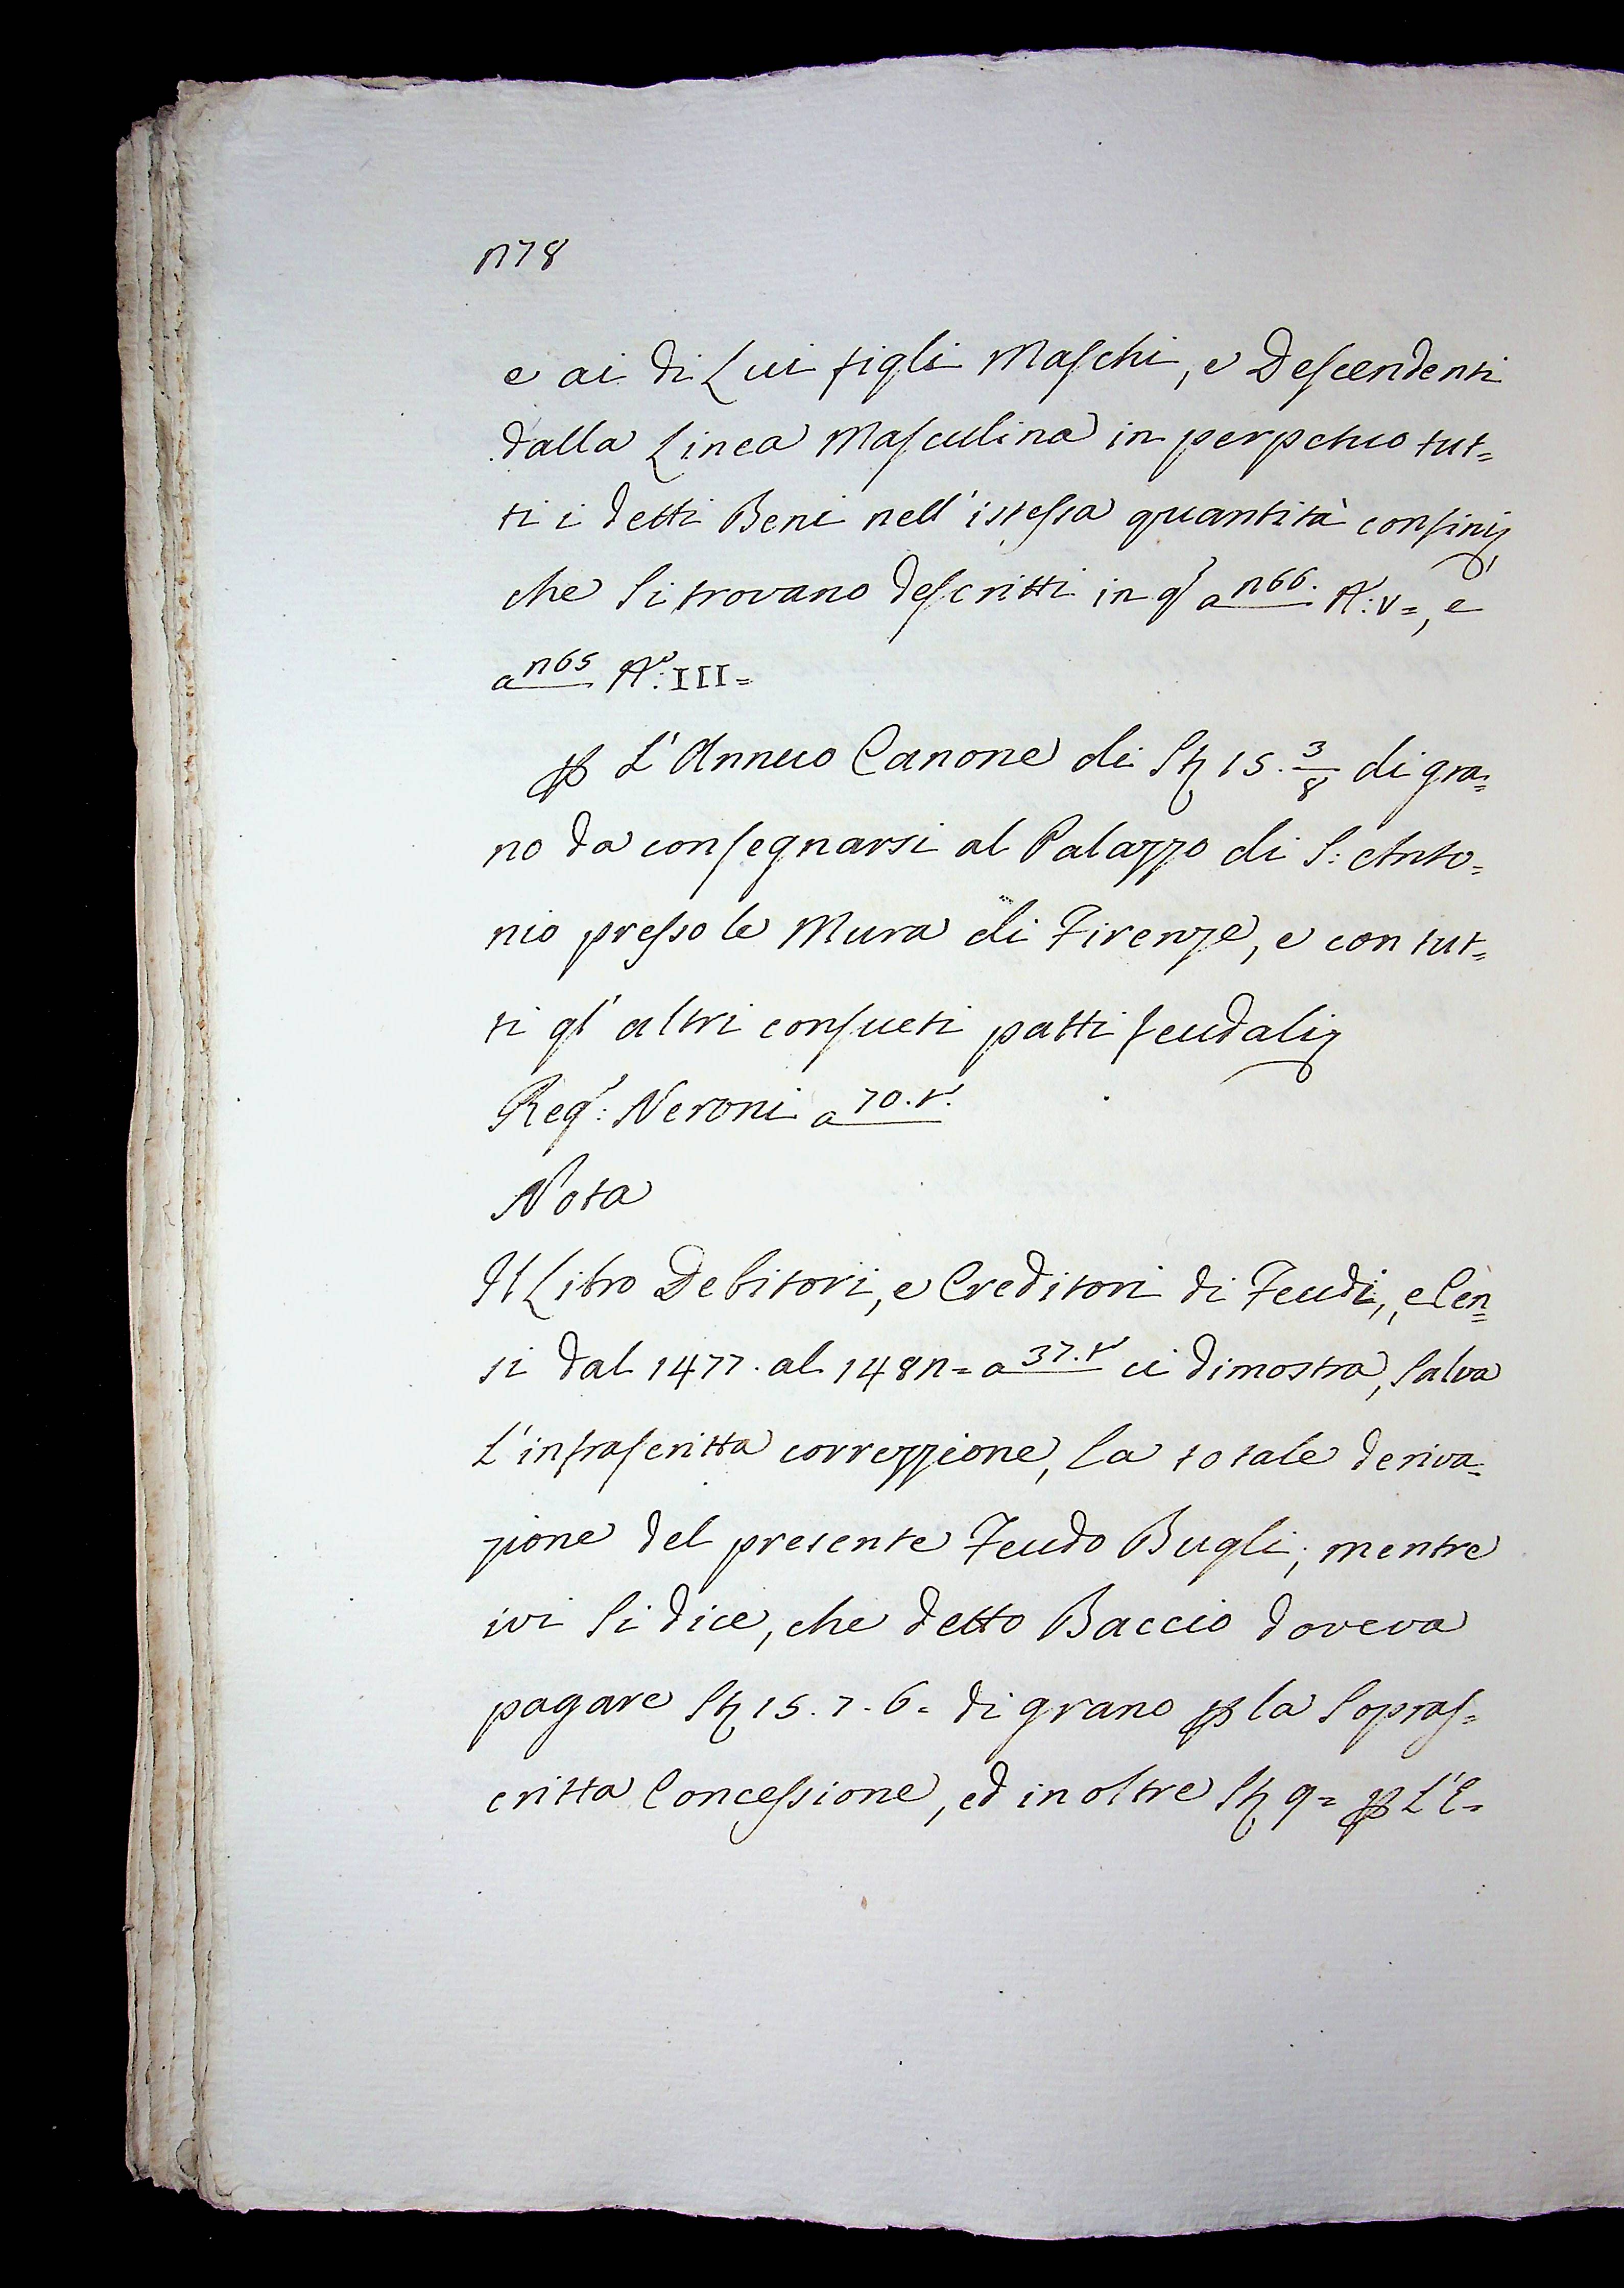 278
e ai di Lui figli Maschi, e Descendenti
dalla Linea Masculina in perpetuo tut=
ti i detti Beni nell'istessa quantità confini,
che Si trovano descritti in q.o a 266. N.o: V=, e
a 265 N.o: III=
p L'Annuo Canone di St 15. 3/8 di gra=
no da consegnarsi al Palazzo di S: Anto=
nio presso le Mura di Firenze, e con tut=
ti gl'altri consueti patti feudali
Reg.o: Neroni a 70. t.
Nota
Il Libro Debitori, e Creditori di Feudi, e Cen=
si dal 1477. al 1482= a 37. t ci dimostra, Salva
L'infrascritta correzzione, La totale deriva=
zione del presente Feudo Bugli; mentre
ivi Si dice, che detto Baccio doveva
pagare St 15. 7. 6= di grano p la Sopras=
critta Concessione, ed inoltre St 9= p L'E=